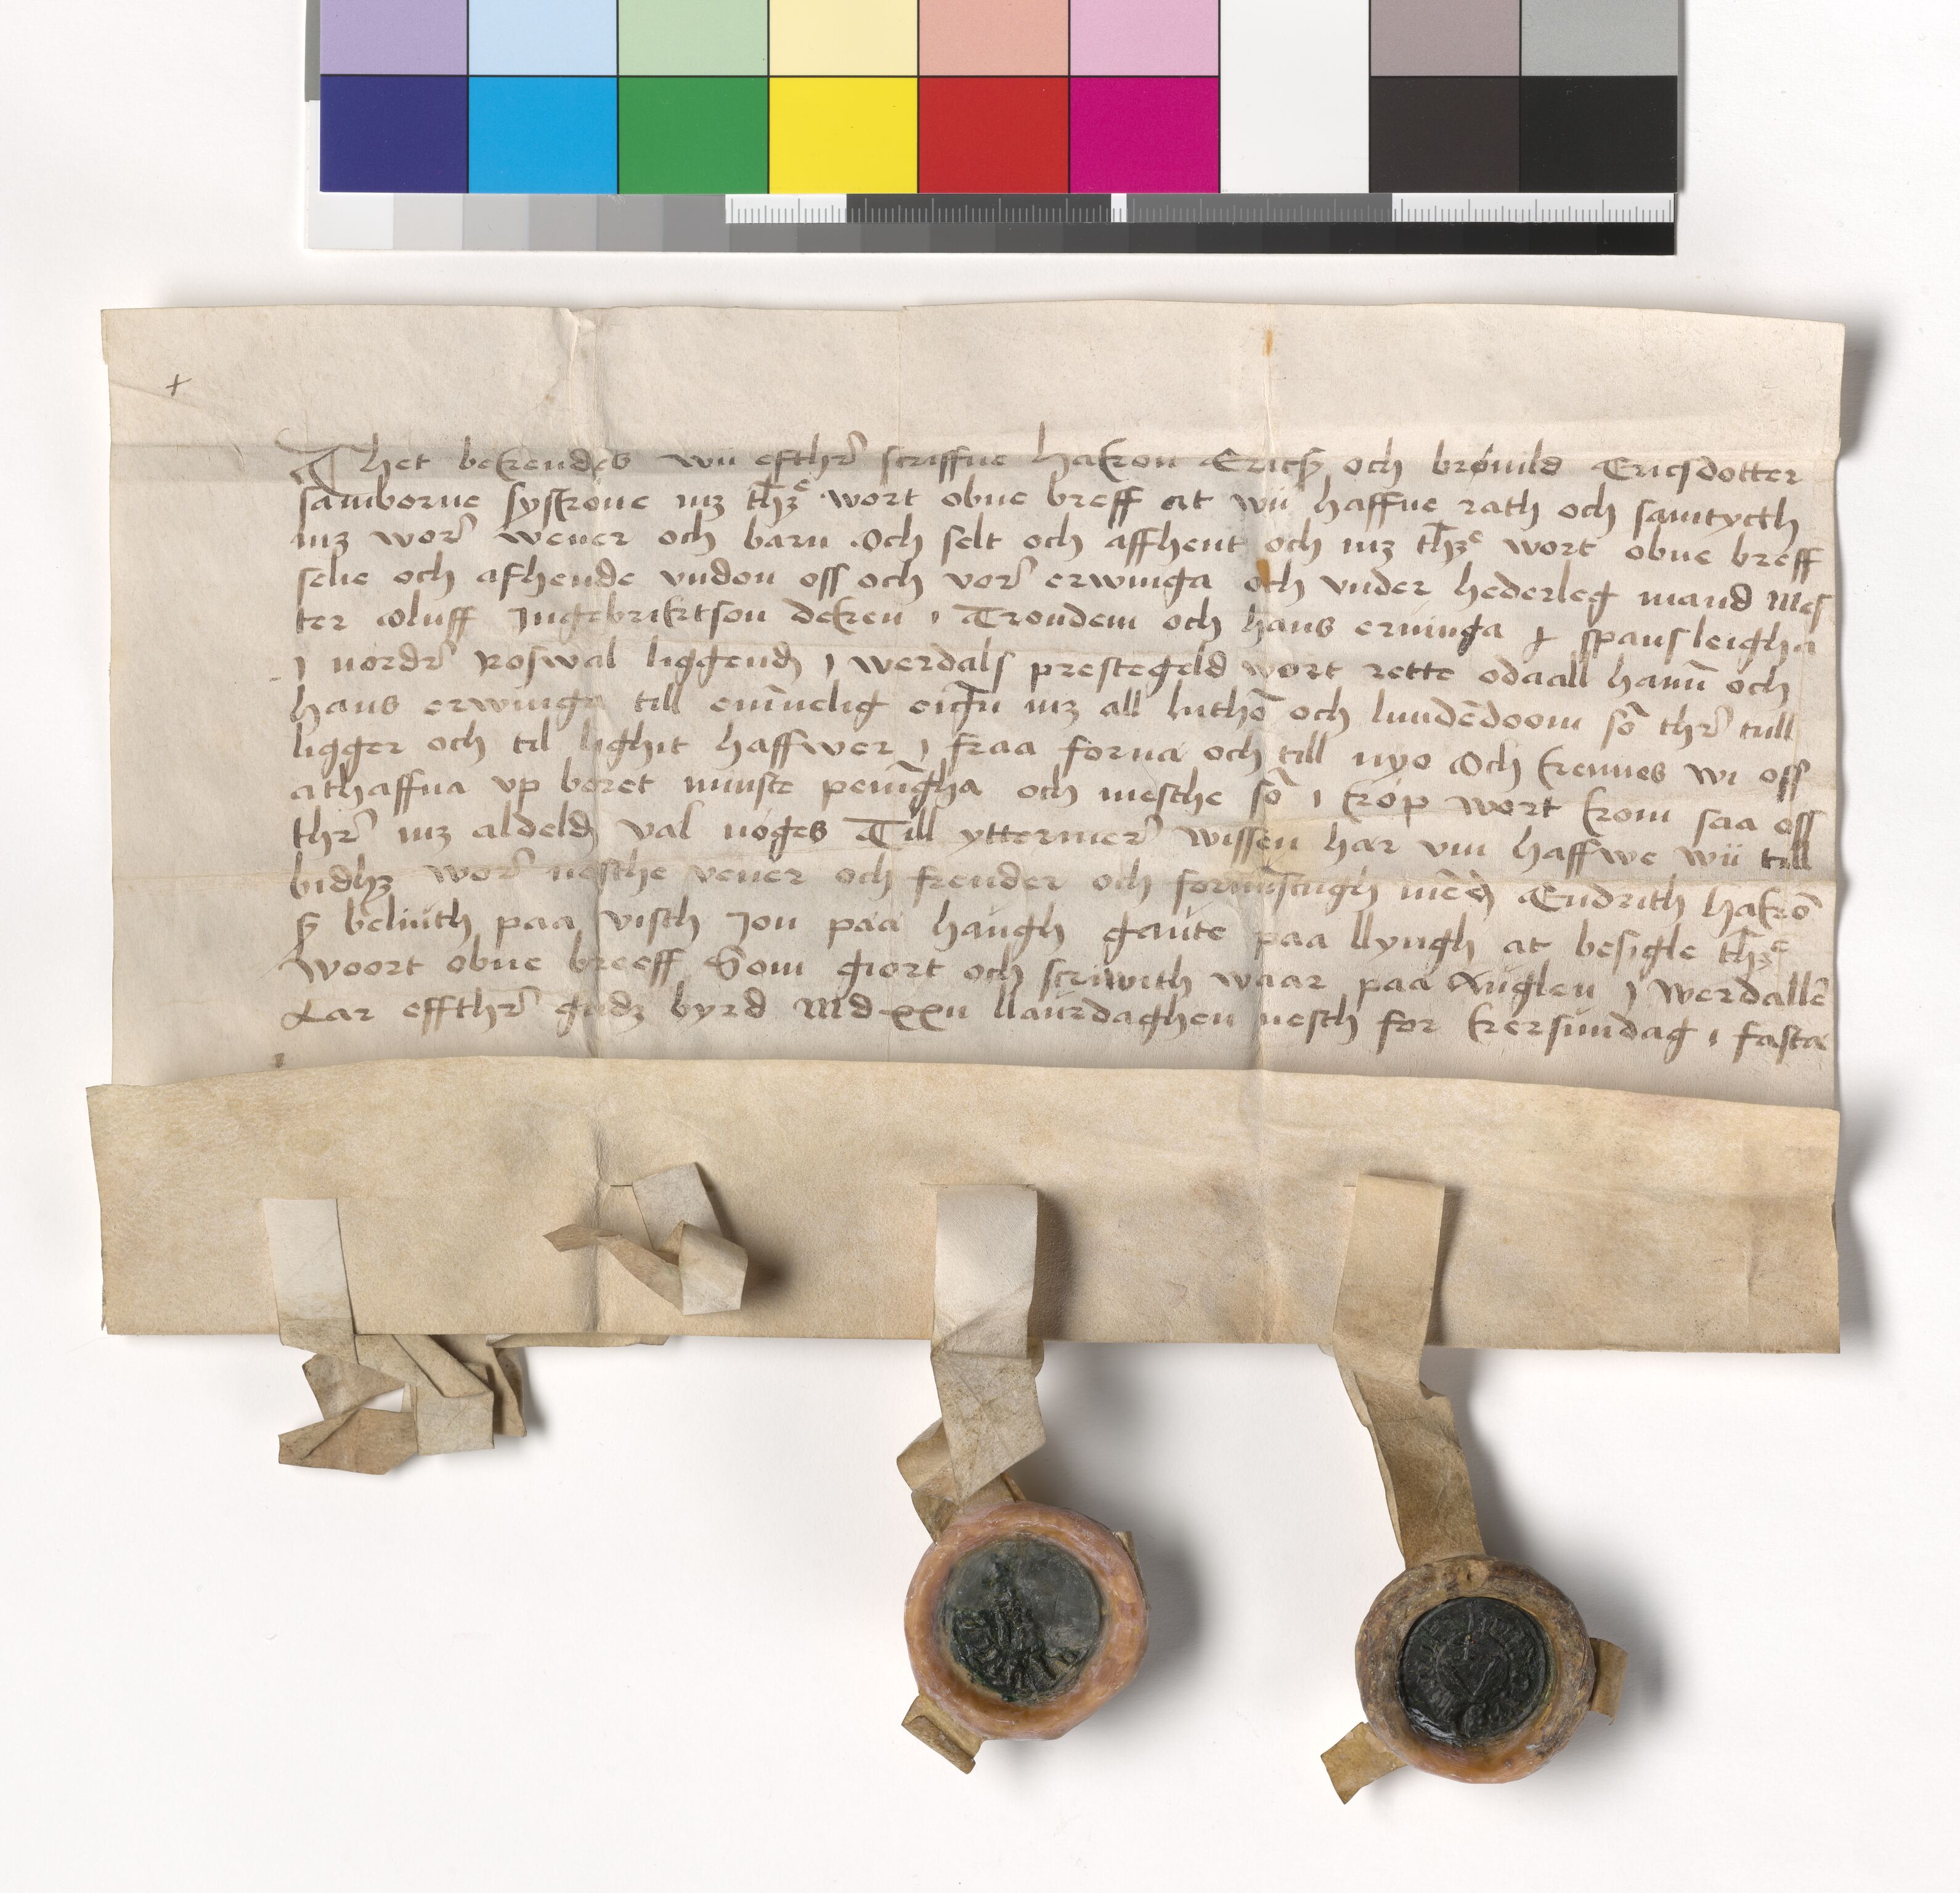 Thet bekendes wii efthr̄ scriffne hakon Ericß och brønild Ericsdotter
samborne syskone mz th̄ꝫe wort obne breff at wii haffue rath och samtycth
mz wor̄ wener och barn Och selt och affhent och mz th̄ꝫe wort obne breff
selie och afhende vndon oss och vor̄ erwinga och vnder hederleg mand Mes
ter Oluff Jngebriktson deken i Trondem och hans ervinga spansleigha
j nordr̄ Roswal liggend j werdals prestegeld wort rette odaall hanū och
hans erwinga till ewinnelig eign mz all luthō och lundēdoom sō thr̄ till
ligger och til lighit haffwer j fraa forna och till nyo Och kennes wi oss
athaffua vp boret minste penīgha och mesthe sō i køp wort kom saa oss
thr̄ mz aldeld val nøges Till yttermer̄ wissen har vm haffwe wii till
bidhꝫ wor̄ nesthe vener och frender och formstugh mēd Endrith hakō
ß beliuth paa visth Jon paa haugh gaute paa llyngh at besigle th̄ꝫe
woort obne breeff Som giort och scriwith waar paa Auglen j werdallē
Aar effthr̄ gudz byrd Mdxxii llaurdaghen nesth for kersundag i fasta